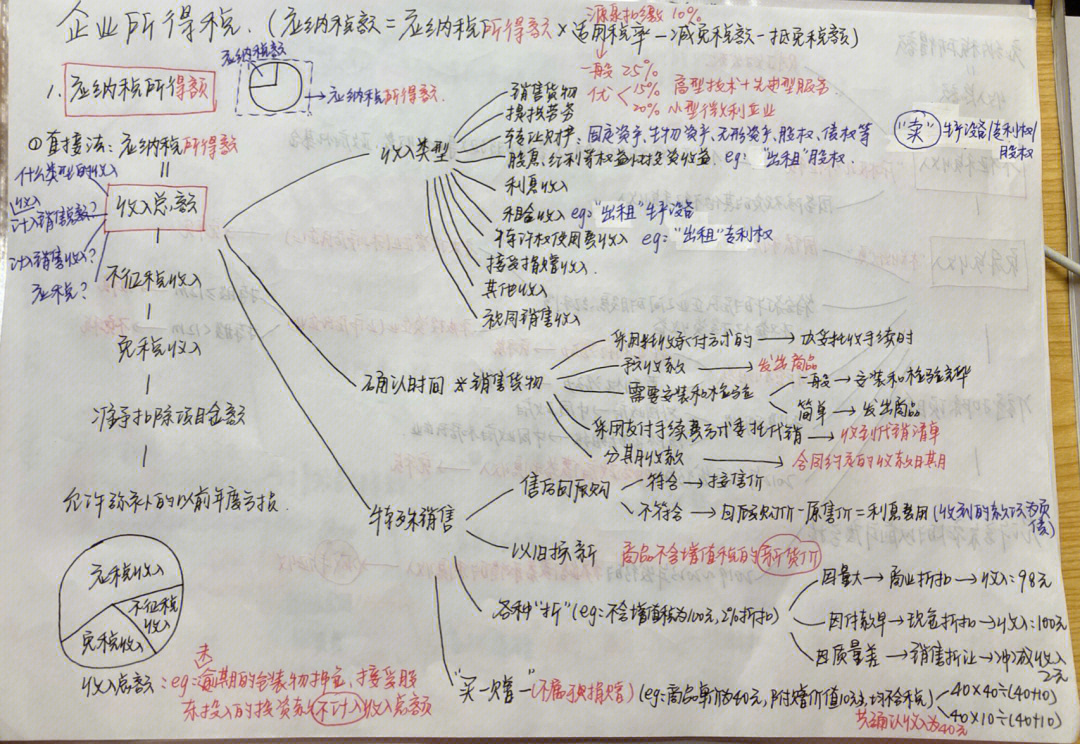 企业所得税.(应纳税额=应纳税所得额×适用税率-减免税额-抵免税额)
源泉扣缴 10%
一般 25%
优 15% 高型技术+先进型服务
20% 小型微利企业
1. 应纳税所得额
应纳税额
应纳税所得额
①直接法:应纳税所得额
=
什么类型的收入
收入
计入销售总额?
计入销售收入?
应税?
收入总额
-
不征税收入
-
免税收入
-
准予扣除项目金额
-
允许弥补的以前年度亏损.
应税收入
不征税收入
免税收入
收入总额:eg:未逾期的包装物押金,接受股
东投入的投资款不计入收入总额
收入类型
销售货物
提供劳务
转让财产:固定资产、生物资产、无形资产、股权、债权等
“卖”生产设备/专利权/
股权
股息、红利等权益性投资收益 eg:“出租”股权.
利息收入
租金收入 eg:“出租”生产设备
特许权使用费收入 eg:“出租”专利权
接受捐赠收入.
其他收入
视同销售收入
确认时间 ※销售货物
采用托收承付方式的→办妥托收手续时
预收款→发出商品
需要安装和检验
一般→安装和检验完毕
简单→发出商品
采用支付手续费方式委托代销→收到代销清单
分期收款→合同约定的收款日期
特殊销售
售后回购
符合→按售价
不符合→回购价-原售价=利息费用(收到的款项为负
债)
以旧换新 商品不含增值税的新货价
各种“折”(eg:不含增值税为100元,2%折扣)
因量大→商业折扣→收入:98元
因付款早→现金折扣→收入:100元
因质量差→销售折让→冲减收入
2元
“买一赠一”(不属于捐赠)(eg:商品单价为40元,附赠价值10元,均不含税)
40×40÷(40+10)
40×10÷(40+10)
共确认收入为40元